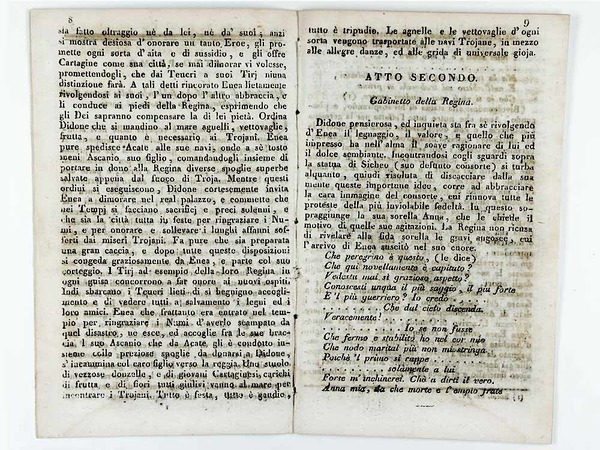 8
sia fatto oltraggio nè da lei, nè da' suoi; anzi
si mostra desiosa d'onorare un tanto Eroe, gli pro-
mette ogni sorta d'aita e di sussidio, e gli offre
Cartagine come sua città, se mai dimorar vi volesse,
promettendogli, che dai Teucri a suoi Tirj niuna
distinzione farà. A tali detti rincorato Enea lietamente
rivolgendosi ai suoi, l'un dopo l'altro abbraccia, e
li conduce ai piedi della Regina, esprimendo che
gli Dei sapranno compensare la di lei pietà. Ordina
Didone che si mandino al mare agnelli, vettovaglie,
frutta, e quanto è necessario ai Trojani. Enea
pure spedisce Acate alle sue navi, onde a sè tosto
meni Ascanio suo figlio, comandandogli insieme di
portare in dono alla Regina diverse spoglie superbe
salvate appena dal fuoco di Troja. Mentre questi
ordini si eseguiscono, Didone cortesemente invita
Enea a dimorare nel real palazzo, e commette che
nei Tempj si facciano sacrificj e preci solenni, e
che sia la città tutta in feste per ringraziare i Nu-
mi, e per onorare e sollevare i lunghi affanni sof-
ferti dai miseri Trojani. Fa pure che sia preparata
una gran caccia, e dopo tutte queste disposizioni
si congeda graziosamente da Enea, e parte col suo
corteggio. I Tirj ad esempio della loro Regina in
ogni guisa concorrono a far onore ai nuovi ospiti.
Indi sbarcano i Teucri lieti di sì benigno accogli-
mento e di vedere tutti a salvamento i legni ed i
loro amici. Enea che frattanto era entrato nel tem-
pio per ringraziare i Numi d'averlo scampato da
quel disastro, ne esce, ed accoglie fra le sue brac-
cia il suo Ascanio che da Acate gli è condotto in-
sieme colle preziose spoglie da donarsi a Didone,
s'incammina col caro figlio verso la reggia. Uno stuolo
di vezzose donzelle, e di giovani Cartaginesi, carichi
di frutta e di fiori tutti giulivi vanno al mare per
incontrare i Trojani. Tutto è festa, tutto è gaudio,
9
tutto è tripudio. Le agnelle e le vettovaglie d'ogni
sorta vengono trasportate alle navi Trojane, in mezzo
alle allegre danze, ed alle grida di universale gioja.
ATTO SECONDO.
Gabinetto della Regina.
Didone pensierosa, ed inquieta sta fra sè rivolgendo
d'Enea il legnaggio, il valore, e quello che più
impresso ha nell'alma il soave ragionare di lui ed
il dolce sembiante. Incontrandosi cogli sguardi sopra
la statua di Sicheo (suo defunto consorte) si turba
alquanto, quindi risoluta di discacciare dalla sua
mente queste importune idee, corre ad abbracciare
la cara immagine del consorte, cui rinnova tutte le
proteste della più inviolabile fedeltà. In questo so-
praggiunge la sua sorella Anna, che le chiede il
motivo di quelle sue agitazioni. La Regina non ricusa
di rivelare alla fida sorella le gravi angosce, cui
l'arrivo di Enea suscitò nel suo cuore.
Che peregrino è questo, (le dice)
Che qui novellamente è capitato?
Vedestu mai sì grazioso aspetto?
Conoscesti unqua il più saggio, il più forte
E 'l più guerriero? Io credo . . . .
. . . . . . . Che dal cielo discenda.
Veracemente! . . . . .
. . . . . . . Io se non fusse
Che fermo e stabilito ho nel cor mio
Che nodo marital più non mi stringa
Poichè 'l primo si ruppe . . . .
. . . . . . . solamente a lui
Forse m'inchinerei. Chè a dirti il vero,
Anna mia, da che morte e l'empio frate